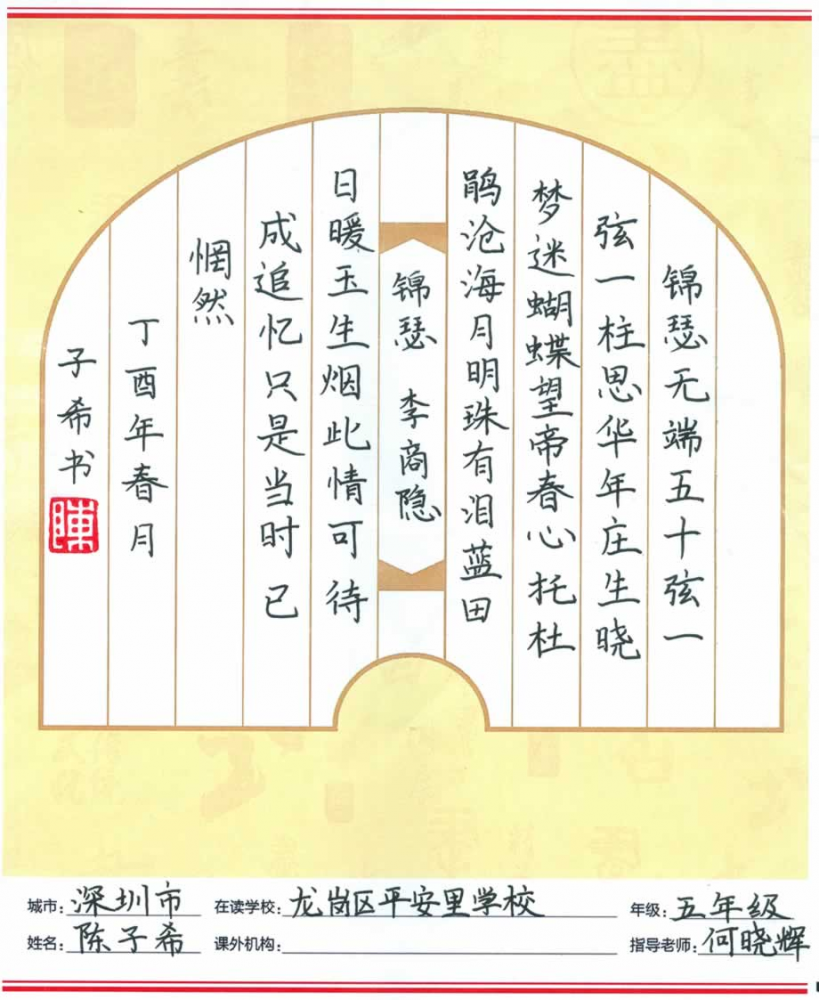 锦瑟无端五十弦一
弦一柱思华年庄生晓
梦迷蝴蝶望帝春心托杜
鹃沧海月明珠有泪蓝田
锦瑟 李商隐
日暖玉生烟此情可待
成追忆只是当时已
惘然
丁酉年春月
子希书
陈
城市：深圳市 在读学校：龙岗区平安里学校 年级：五年级
姓名：陈子希 课外机构： 指导老师：何晓辉